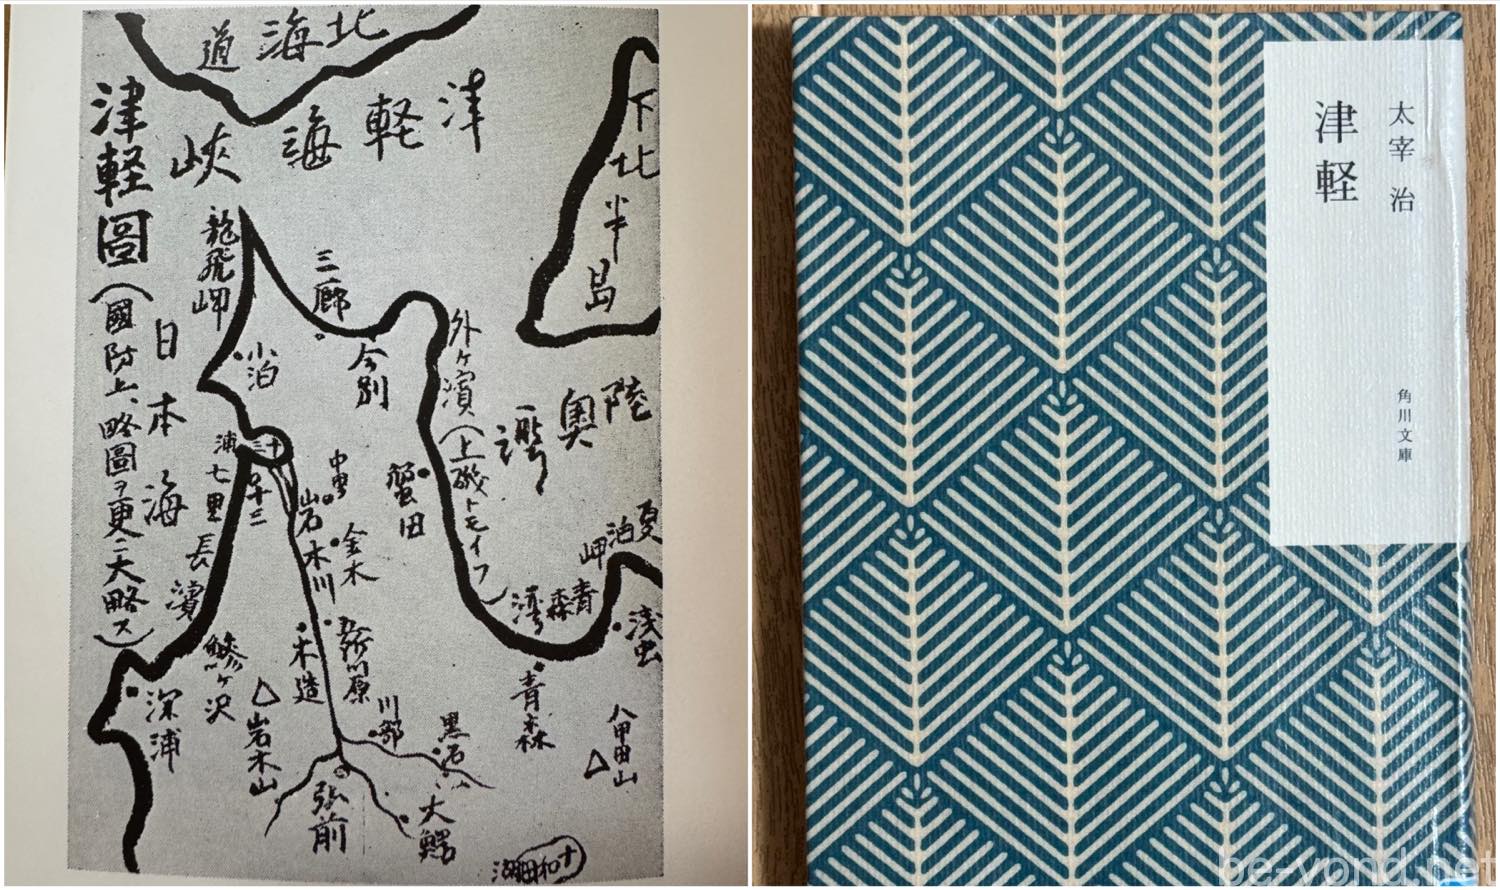 北海道
津軽海峡
津軽圖
(國防上、略圖ヲ更ニ大略ス)
下北半島
龍飛岬
三厩
今別
日本海
小泊
外ヶ濱(上磯トモイフ)
陸奥灣
十三
浦
七里長濱
中里
蟹田
岩木川
金木
夏泊岬
青森湾
浅虫
鰺ヶ沢
木造
五所川原
深浦
岩木山
川部
黒石
青森
八甲田山
弘前
大鰐
十和田湖
太宰 治
津軽
角川文庫
be-yond.net